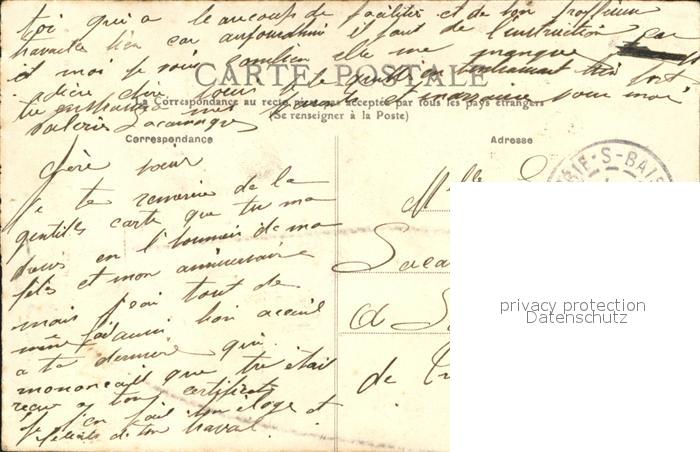 toi qui a beaucoup de facilités et de bon professeur
travaille bien car aujourd'hui il faut de l'instruction car
et moi je vois combien elle me manque
adieu chère soeur je te quitte en t'embrassant très fort
tu embrasseras maman et marraine pour moi
Valérie
CARTE POSTALE
La Correspondance au recto n'est pas acceptée par tous les pays étrangers
(Se renseigner à la Poste)
Correspondance
Adresse
chère soeur
Je te remercie de la
gentille carte que tu ma
en l'honneur de ma
fête et mon anniversaire
mais j'ai tout de
même bon acceuil
a ta dernière qui
mononcait que tu était
recu a ton certificat
je t'en fais un éloge et
félicite de ton travail.
Mlle
Laca
a S
de
S-BAÏS
privacy protection
Datenschutz